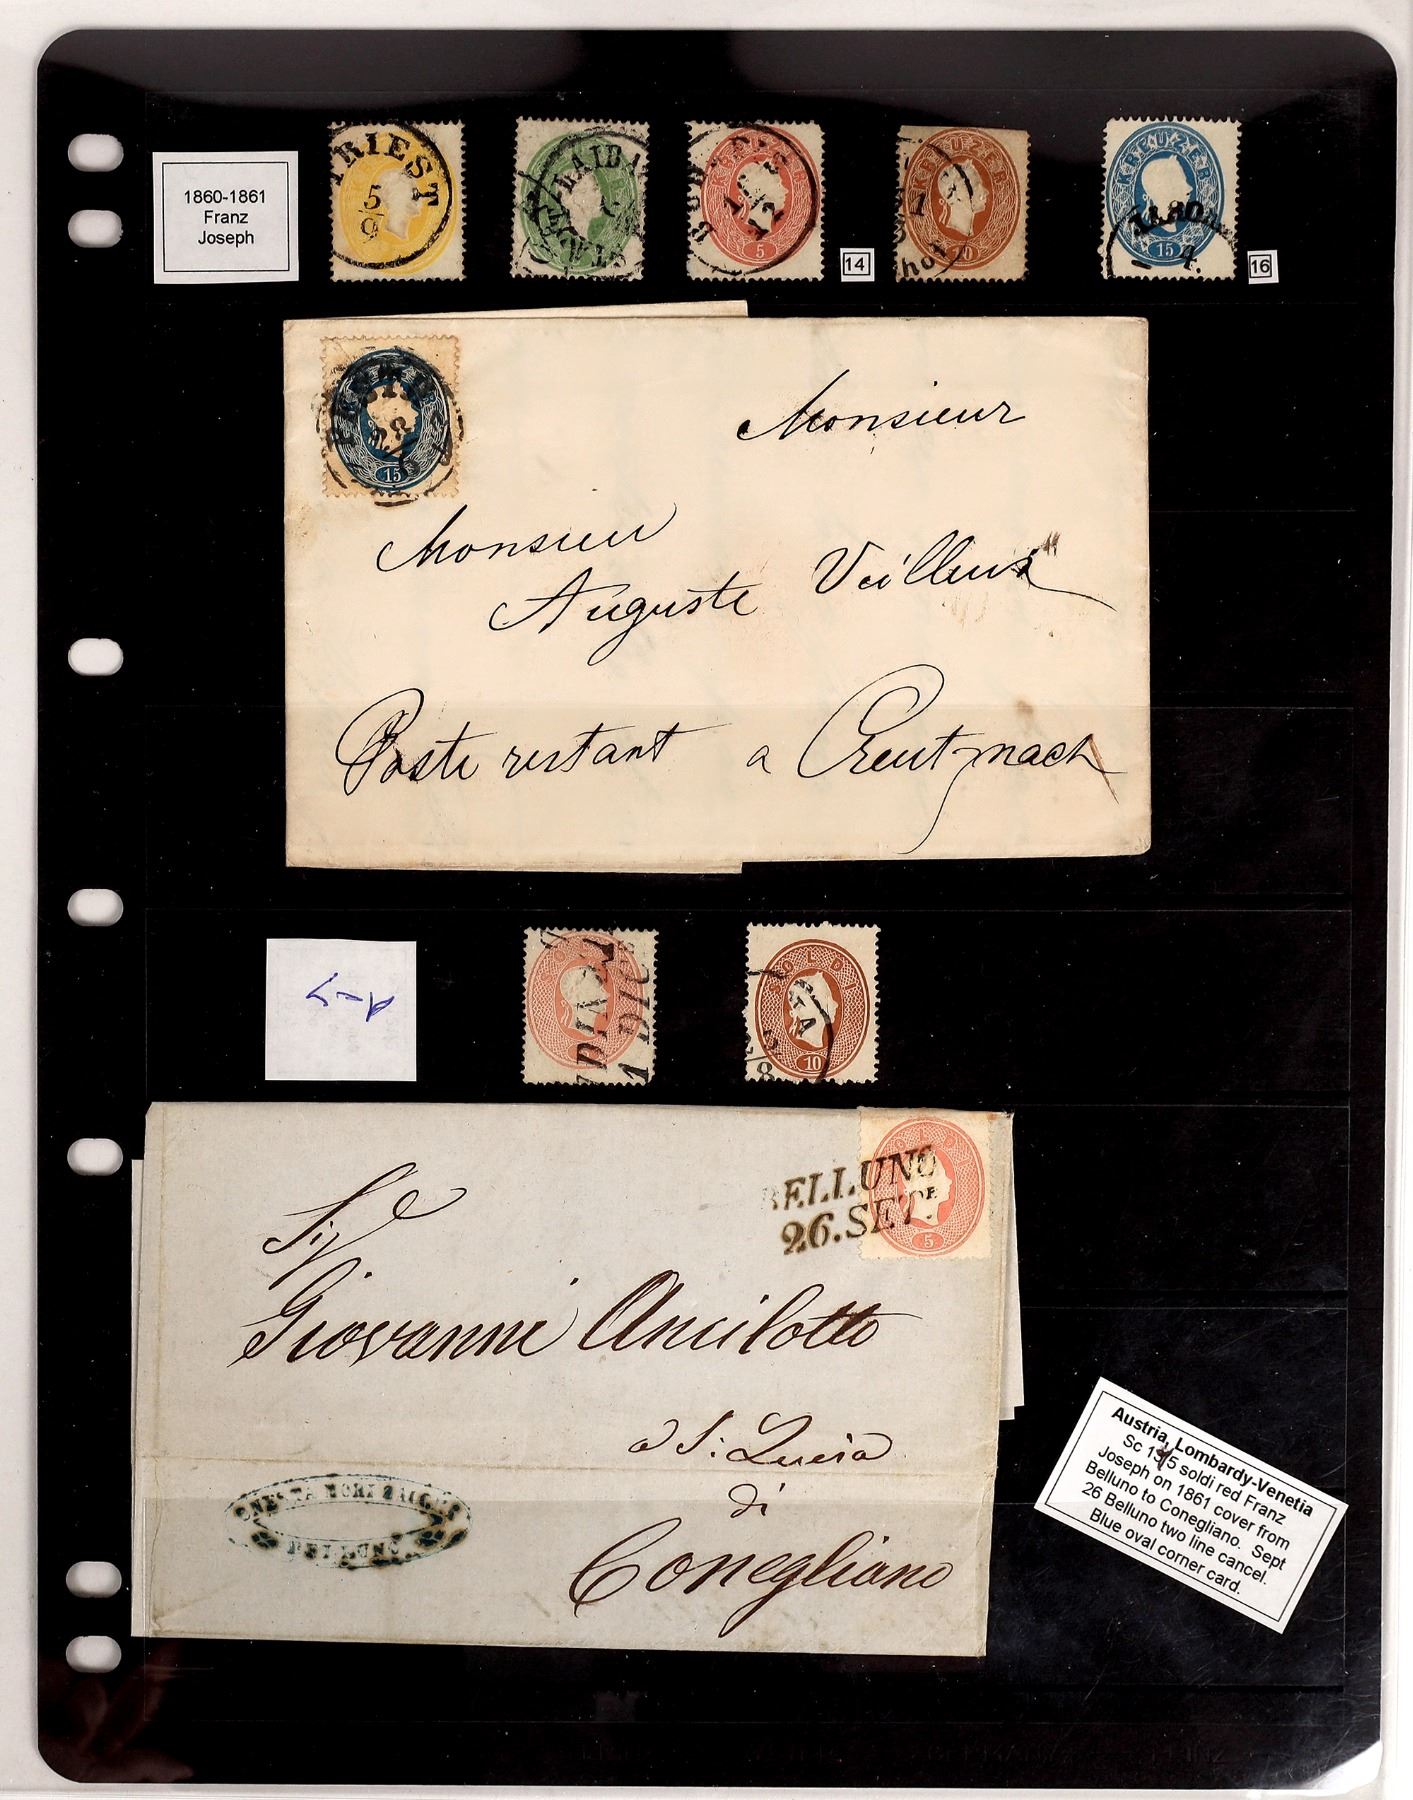 1860-1861
Franz
Joseph
TRIEST
5
9
KREUZER
5
12
14
KREUZER
KREUZER
15
16
15
Monsieur
Monsieur
Auguste
Poste restant a Creutznach
L-V
SOLDI
10
BELLUNO
26. SET
SOLDI
5
Sigr
Giovanni Ancilotto
a S: Lucia
di
Conegliano
BELLUNO
Austria, Lombardy-Venetia
Sc 15 soldi red Franz
Joseph on 1861 cover from
Belluno to Conegliano. Sept
26 Belluno two line cancel.
Blue oval corner card.